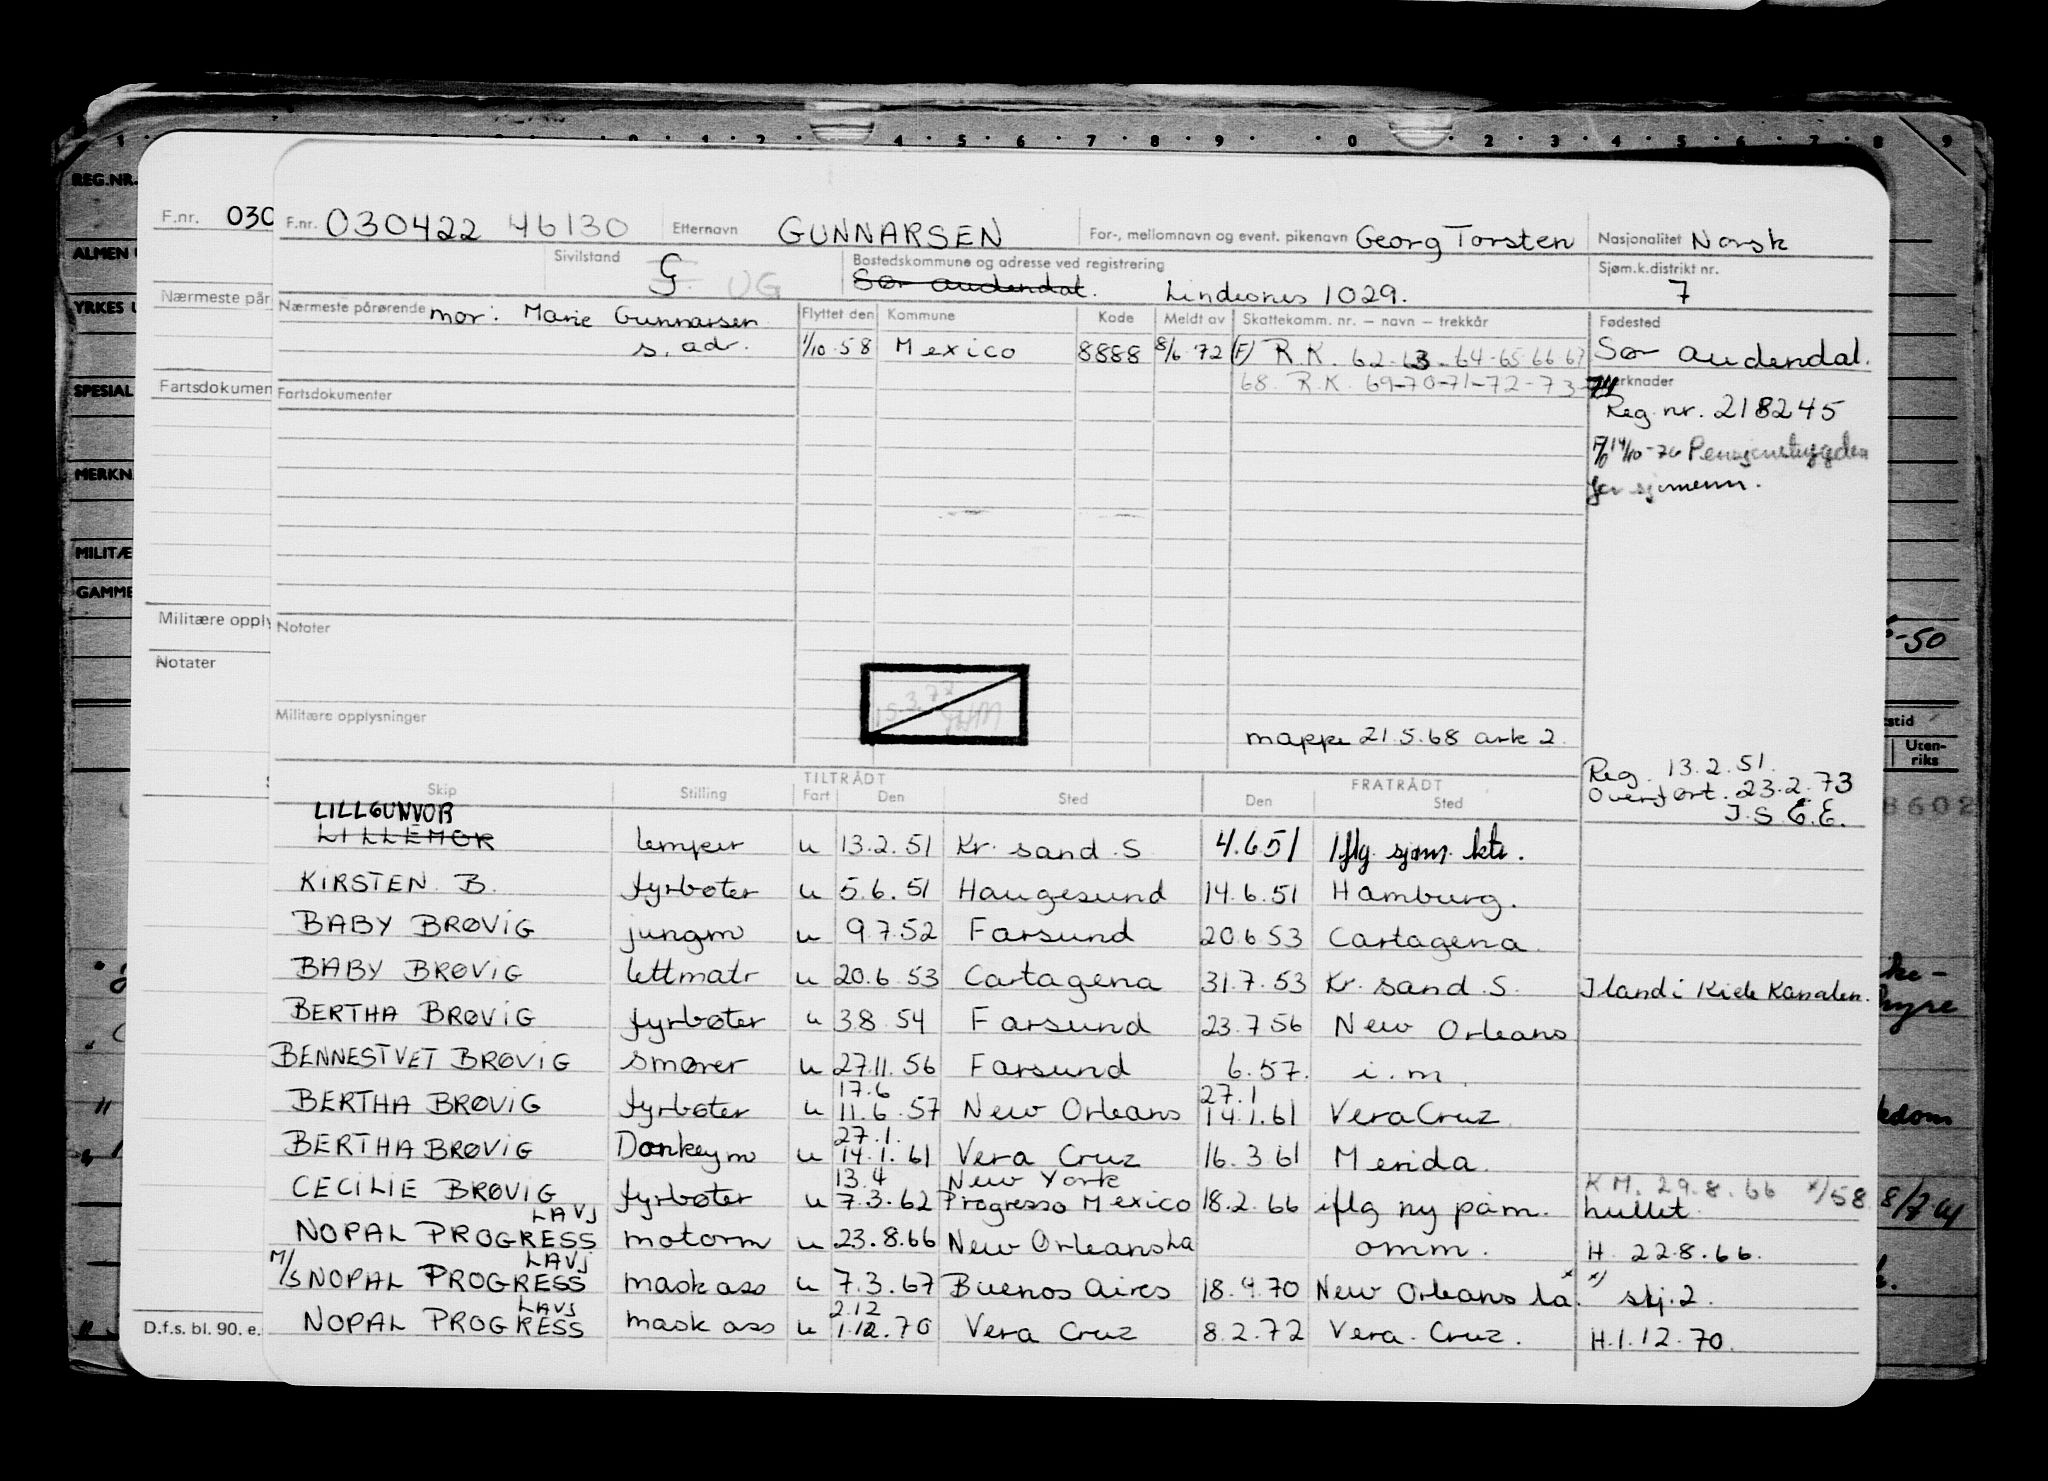 1 2 4 5 6 7 8 9 0 2 3 4 5 6 7 8 9
REG.NR.
ALMEN
YRKES
SPESIAL
MERKN
MILITÆ
GAMME
F.nr. 030
Nærmeste pår
Fartsdokumen
Militære opply
Notater
D.f.s. bl. 90. e.
F.nr. 030422 46130 Etternavn GUNNARSEN For-, mellomnavn og event. pikenavn Georg Torsten Nasjonalitet Norsk
Sivilstand G UG Bostedskommune og adresse ved registrering Sør audendal. Lindesnes 1029. Sjøm.k.distrikt nr. 7
Nærmeste pårørende mor: Marie Gunnarsen Flyttet den Kommune Kode Meldt av Skattekomm. nr. – navn – trekkår Fødested
s. adr. 1/10.58 Mexico 8888 8/6.72 (F) R.K. 62-63-64-65-66-67 Sør audendal.
68. R.K. 69-70-71-72-73-74 Merknader
Fartsdokumenter
Reg. nr. 218245
14/10-76 Pensjonstrygden
for sjømenn.
Notater
Militære opplysninger
15.3.77
mappe 21.5.68 ark 2.
Reg. 13.2.51.
Overført. 23.2.73
J.S.E.E.
Skip Stilling TILTRÅDT Fart Den Sted FRATRÅDT Den Sted
LILLGUNVOR
LILLEMOR lemper u 13.2.51 Kr. sand .S 4.6.51 Iflg. sjøm. ktr.
KIRSTEN. B. fyrbøter u 5.6.51 Haugesund 14.6.51 Hamburg.
BABY BRØVIG jungm u 9.7.52 Farsund 20.6.53 Cartagena.
BABY BRØVIG lettmatr u 20.6.53 Cartagena 31.7.53 Kr. sand .S. Iland i Kiele Kanalen.
BERTHA BRØVIG fyrbøter u 3.8.54 Farsund 23.7.56 New Orleans
BENNESTVET BRØVIG smører u 27.11.56 Farsund 6.57. i.m.
17.6 27.1
BERTHA BRØVIG fyrbøter u 11.6.57 New Orleans 14.1.61 Vera Cruz
27.1.
BERTHA BRØVIG Donkeym u 14.1.61 Vera Cruz 16.3.61 Merida.
13.4 New York K M. 29.8.66 x/58
CECILIE BRØVIG fyrbøter u 7.3.62 Progresso Mexico 18.2.66 iflg ny påm. hullet.
LAVJ
NOPAL PROGRESS motorm u 23.8.66 New Orleans La omm. H. 22.8.66.
LAVJ
M/S NOPAL PROGRESS mask ass u 7.3.67 Buenos Aires 18.9.70 New Orleans La. x x) skj.2.
LAVJ 2.12
NOPAL PROGRESS mask ass u 1.12.70 Vera Cruz 8.2.72 Vera Cruz. H.1.12.70.
-50
stid
Uten-
riks
8602
ke-
hyre
kdom
8/7 61